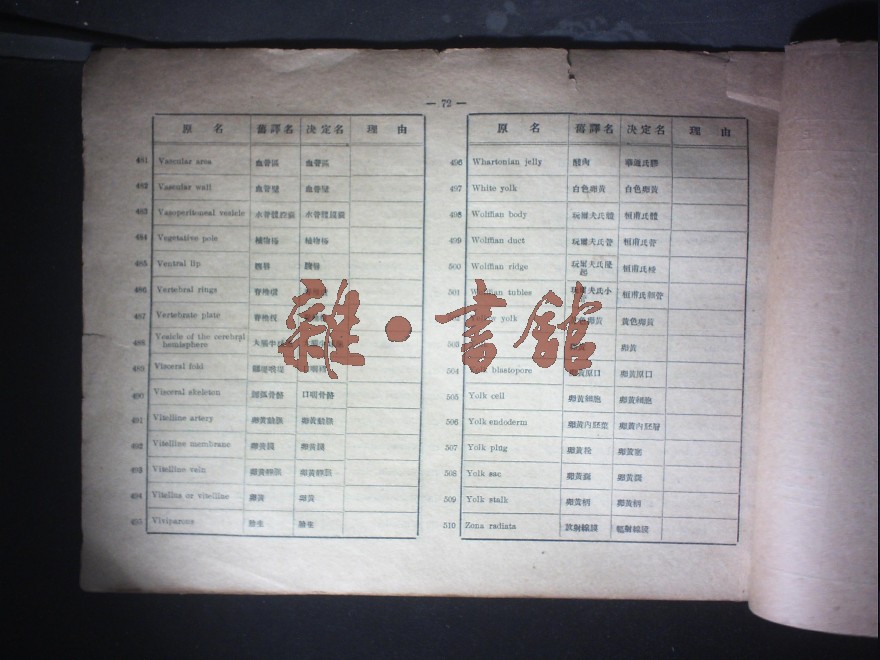 — 72 —
原 名 舊譯名 決定名 理 由
481 Vascular area 血管區 血管區
482 Vascular wall 血管壁 血管壁
483 Vasoperitoneal vesicle
484 Vegetative pole 植物極 植物極
485 Ventral lip 腹唇 腹唇
486 Vertebral rings
487 Vertebrate plate
488 Vesicle of the cerebral
hemisphere
489 Visceral fold
490 Visceral skeleton 口咽骨骼
491 Vitelline artery 卵黃動脈 卵黃動脈
492 Vitelline membrane 卵黃膜 卵黃膜
493 Vitelline vein 卵黃靜脈 卵黃靜脈
494 Vitellus or vitelline 卵黃 卵黃
495 Viviparous 胎生 胎生
原 名 舊譯名 決定名 理 由
496 Whartonian jelly 華通氏膠
497 White yolk 白色卵黃 白色卵黃
498 Wolffian body 玩爾夫氏體 恒甫氏體
499 Wolffian duct 玩爾夫氏管 恒甫氏管
500 Wolffian ridge 玩爾夫氏隆
起 恒甫氏稜
501 Wolffian tubles 玩爾夫氏小 恒甫氏細管
yolk 黃色卵黃
503 卵黃
504 blastopore 卵黃原口 卵黃原口
505 Yolk cell 卵黃細胞 卵黃細胞
506 Yolk endoderm 卵黃內胚葉 卵黃內胚層
507 Yolk plug 卵黃栓 卵黃塞
508 Yolk sac 卵黃囊 卵黃囊
509 Yolk stalk 卵黃柄 卵黃柄
510 Zona radiata 放射線膜 輻射線膜
雜·書館